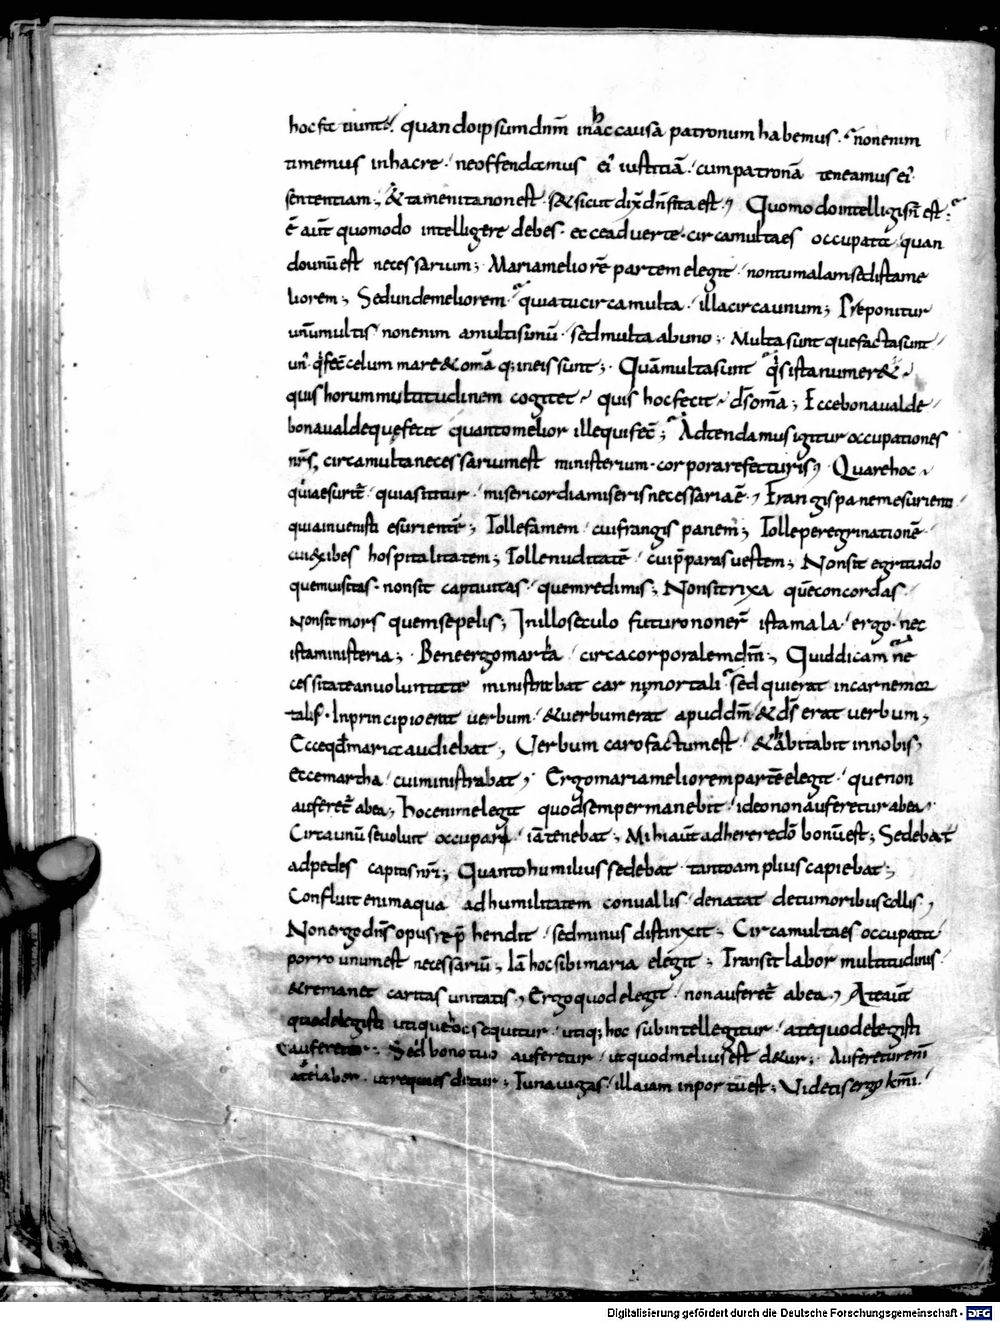 hocfit iiunt&. quandoipsumdnm inhaccausa patronum habemus. nonenim
timemus inhacre. neoffendamus ei iustitiā. cumpatronā teneamus ei
sententiam; & tamenitanonest. s& sicut dix dnsita est; Quomodointelligisn est.
ē aūt quomodo intelligere debes. ecceadverte. circamultaes occupata quan
dounūest necessarium; Mariameliorē partemelegit. nontumalamsedistame
liorem; Sedundemeliorem. quiatucircamulta. illacircaunum; Preponitur
unūmultis. nonenim amultisunū. sedmulta abuno; Multa sunt quefactasunt.
un qfec celum mare & omā q; ineis sunt; Quāmultasunt q̄s istanumer&.
quis horummultitudinem cogitet. quis hocfecit. ds omā; Eccebonavalde.
bonavaldequefecit quantomelior illequifec; Adtendamusigitur occupationes
nrs, circamultanecessariumest ministerium. corporarefecturis; Quarehoc
quiaesurit. quiasititur. misericordiamiserisnecessariaē; Frangispanemesurienti.
quiainvenisti esurientē; Tollefamem. cuifrangis panem; Tolleperegrinationē.
cuiexibes hospitalitatem; Tollenuditatē. cuip̄parasvestem; Nonsit egritudo
quemvisitas. nonsit captivitas. quemredimis; Nonsitrixa quēconcordas.
Nonsitmors quemsepelis; Inilloseculo futurononer ista mala. ergo. nec
istaministeria; Beneergomartha. circacorporalemdm̄; Quiddicam ne
cessitateanvoluntate ministrabat carni mortali. sed quierat incarnemor
tali. Inprincipioerat verbum. & verbumerat apuddm̄. & ds erat verbum;
Ecceqdmaria audiebat; Verbum carofactumest. & habitabit innobis;
eccemartha. cuiministrabat; Ergomariameliorempartēelegit. quenon
auferet abea; hocenimelegit quodsempermanebit. ideononauferetur abea.
Circaunū sevoluit occupari. iātenebat; Mihiaut adhereredō bonūest; Sedebat
adpedes capitisnri; Quantohumiliussedebat. tantoampliuscapiebat;
Confluit enimaqua adhumilitatem convallis. denatat detumoribuscollis;
Nonergodns opusrep̄hendit. sedminus distinxit; Circamultaes occupata
porro unumest necessariū; Iā hocsibimaria elegit; Transit labor multitudinis.
& remanet caritas unitatis; Ergo quodelegit. nonauferet abea; Ateaūt
quodelegisti utiquehoc sequitur. utiq; hoc subintellegitur. atequodelegisti
auferetur. Sed bonotuo auferetur. utquodmeliusest d&ur; Auferetur eni
atelabor. utrequies ditur; Tunavigas. illaiam inportuest; Videtis ergo kmi.
Digitalisierung gefördert durch die Deutsche Forschungsgemeinschaft - DFG